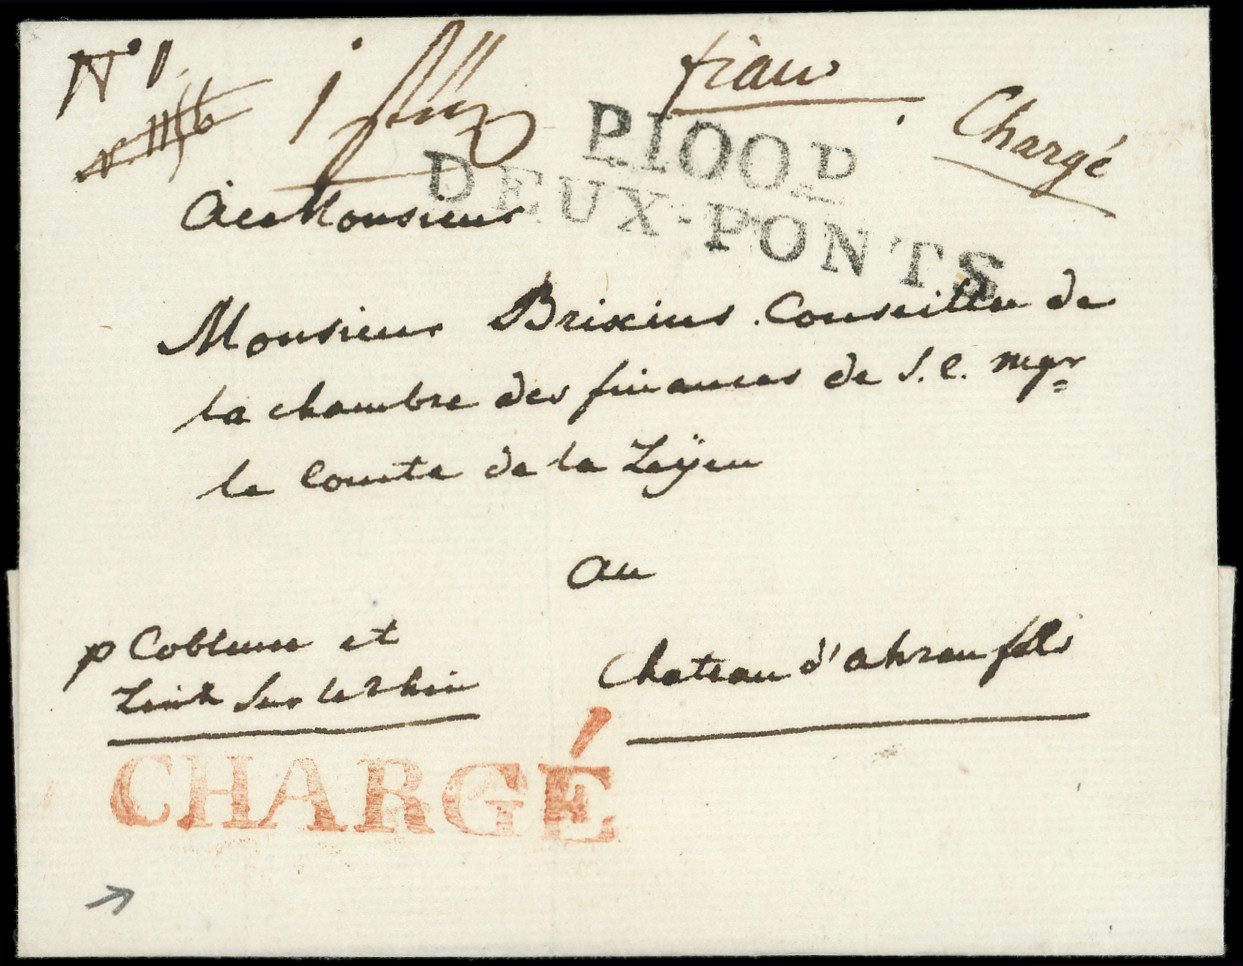 N° 1.
franco
Chargé
P.100.P
DEUX-PONTS
A Monsieur
Monsieur Brixius Conseiller de
la chambre des finances de S. E. mgr
le Comte de la Leÿen
au
p Coblence et
Chateau d'ahrenfels
Linz sur le Rhin
CHARGÉ